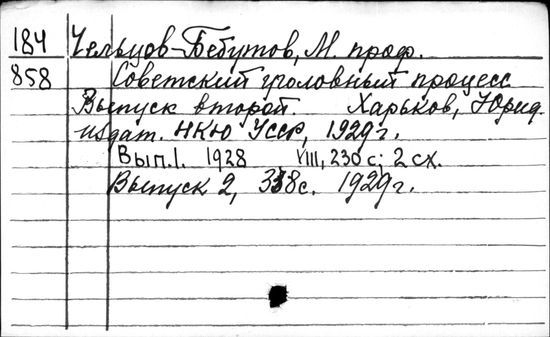 184 Чельцов-Бебутов, М. проф.
858 Советский уголовный процесс
Выпуск второй. Харьков, Юрид.
издат. НКЮ УССР, 1929г.
Вып.1. 1928 VIII, 230 с; 2 сх.
Выпуск 2, 338с. 1929г.